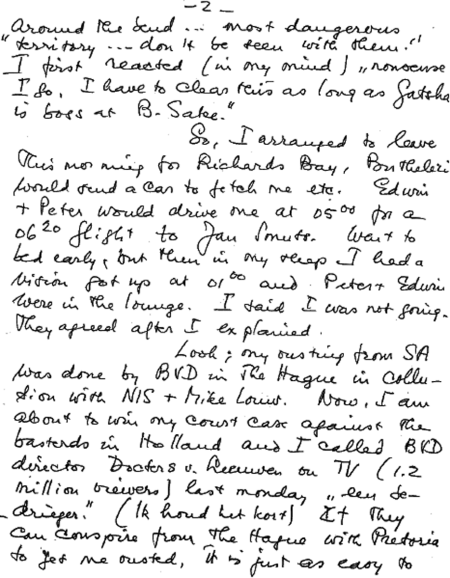 - 2 -
Around the bend ... most dangerous
"territory ... don't be seen with them."
I first reacted (in my mind) „nonsense
I go, I have to clear this as long as Gatsha
is boss at B-Sake."
So, I arranged to leave
This morning for Richards Bay,
would send a car to fetch me etc. Edwin
+ Peter would drive me at 05⁰⁰ for a
06²⁰ flight to Jan Smuts. Went to
bed early, but then in my sleep I had a
vision got up at 01⁰⁰ and Peter + Edwin
were in the lounge. I said I was not going.
They agreed after I explained.
Look; my ousting from SA
was done by BVD in The Hague in collu-
sion with NIS + Mike Louw. Now, I am
about to win my court case against the
basterds in Holland and I called BVD
director Docters v. Leeuwen on TV (1.2
million viewers) last monday, „een be-
drieger." (Ik houd het kort) If They
can conspire from The Hague with Pretoria
to get me ousted, it is just as easy to